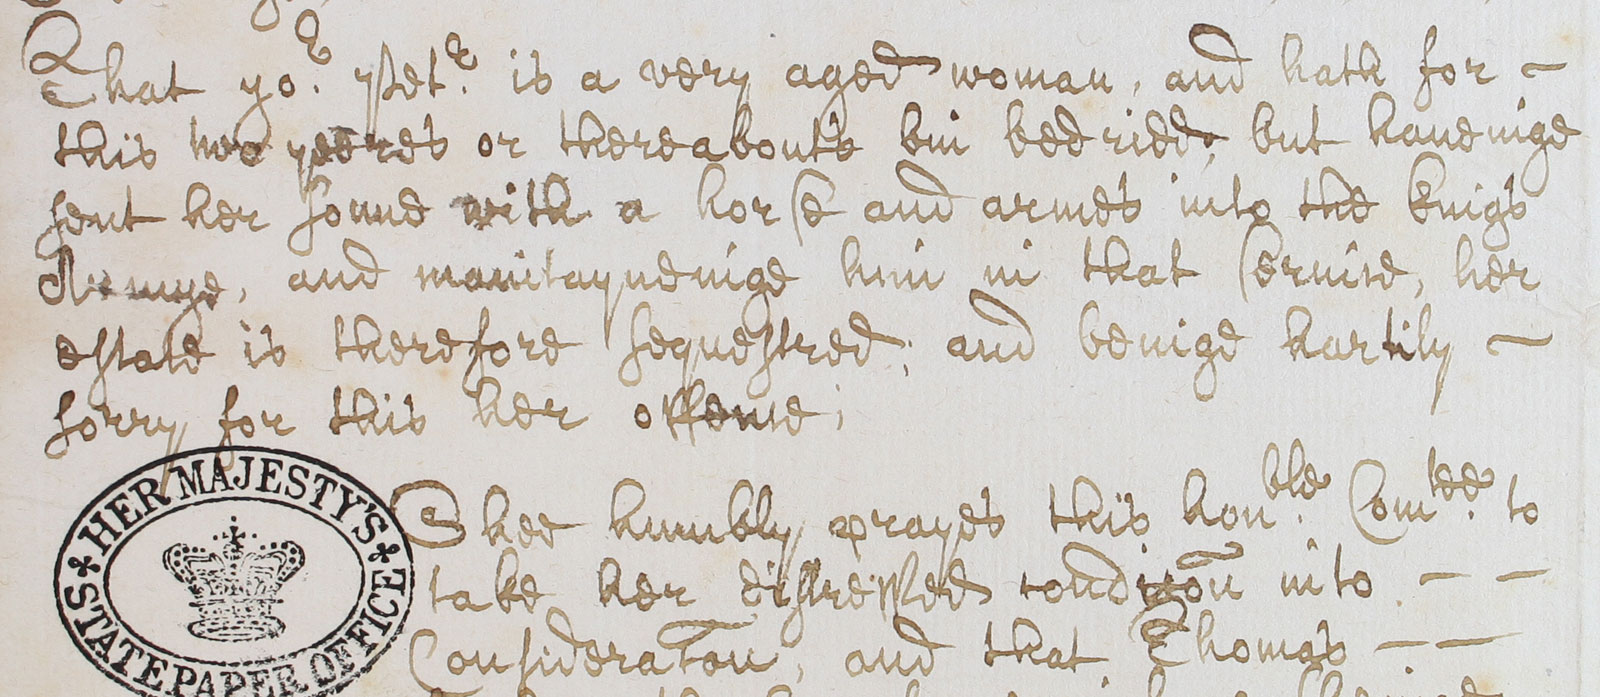 That yor. Petr. is a very aged woman, and hath for ~
this two yeeres or thereabouts bin bedridd, but haveinge
sent her sonne with a horse and armes into the kings
Armye, and manitayneinge him in that service, her
estate is therefore sequestred; and beinge hartily ~
sorry for this her offence;
Shee humbly prayes this honble. Comtee. to
take her distressed condicõn into - -
Consideratõn, and that Thomas - -
HER MAJESTY'S STATE PAPER OFFICE